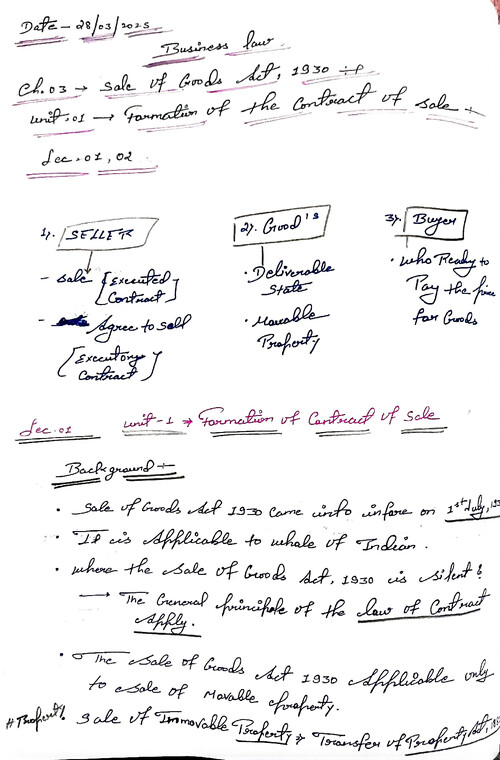 Date - 28/03/2025
Business law.
Ch.03 → Sale of Goods Act, 1930 :-
unit.01 → Formation of the Contract of Sale :-
Lec.01,02
1). SELLER
- Sale [Executed Contract]
- Agree to Sell
[Executory Contract]
2). Good's
• Deliverable State
• Movable Property
3). Buyer
• who Ready to Pay the price for Goods
Lec.01 unit-1 → Formation of Contract of Sale
Background :-
• Sale of Goods Act 1930 Came into infore on 1st July, 1930
• It is Applicable to whole of Indian.
• where the Sale of Goods Act, 1930 is silent :
→ The General principle of the law of Contract
Apply.
• The Sale of Goods Act 1930 Applicable only
to Sale of Movable property.
# Property. Sale of Immovable Property → Transfer of Property Act,